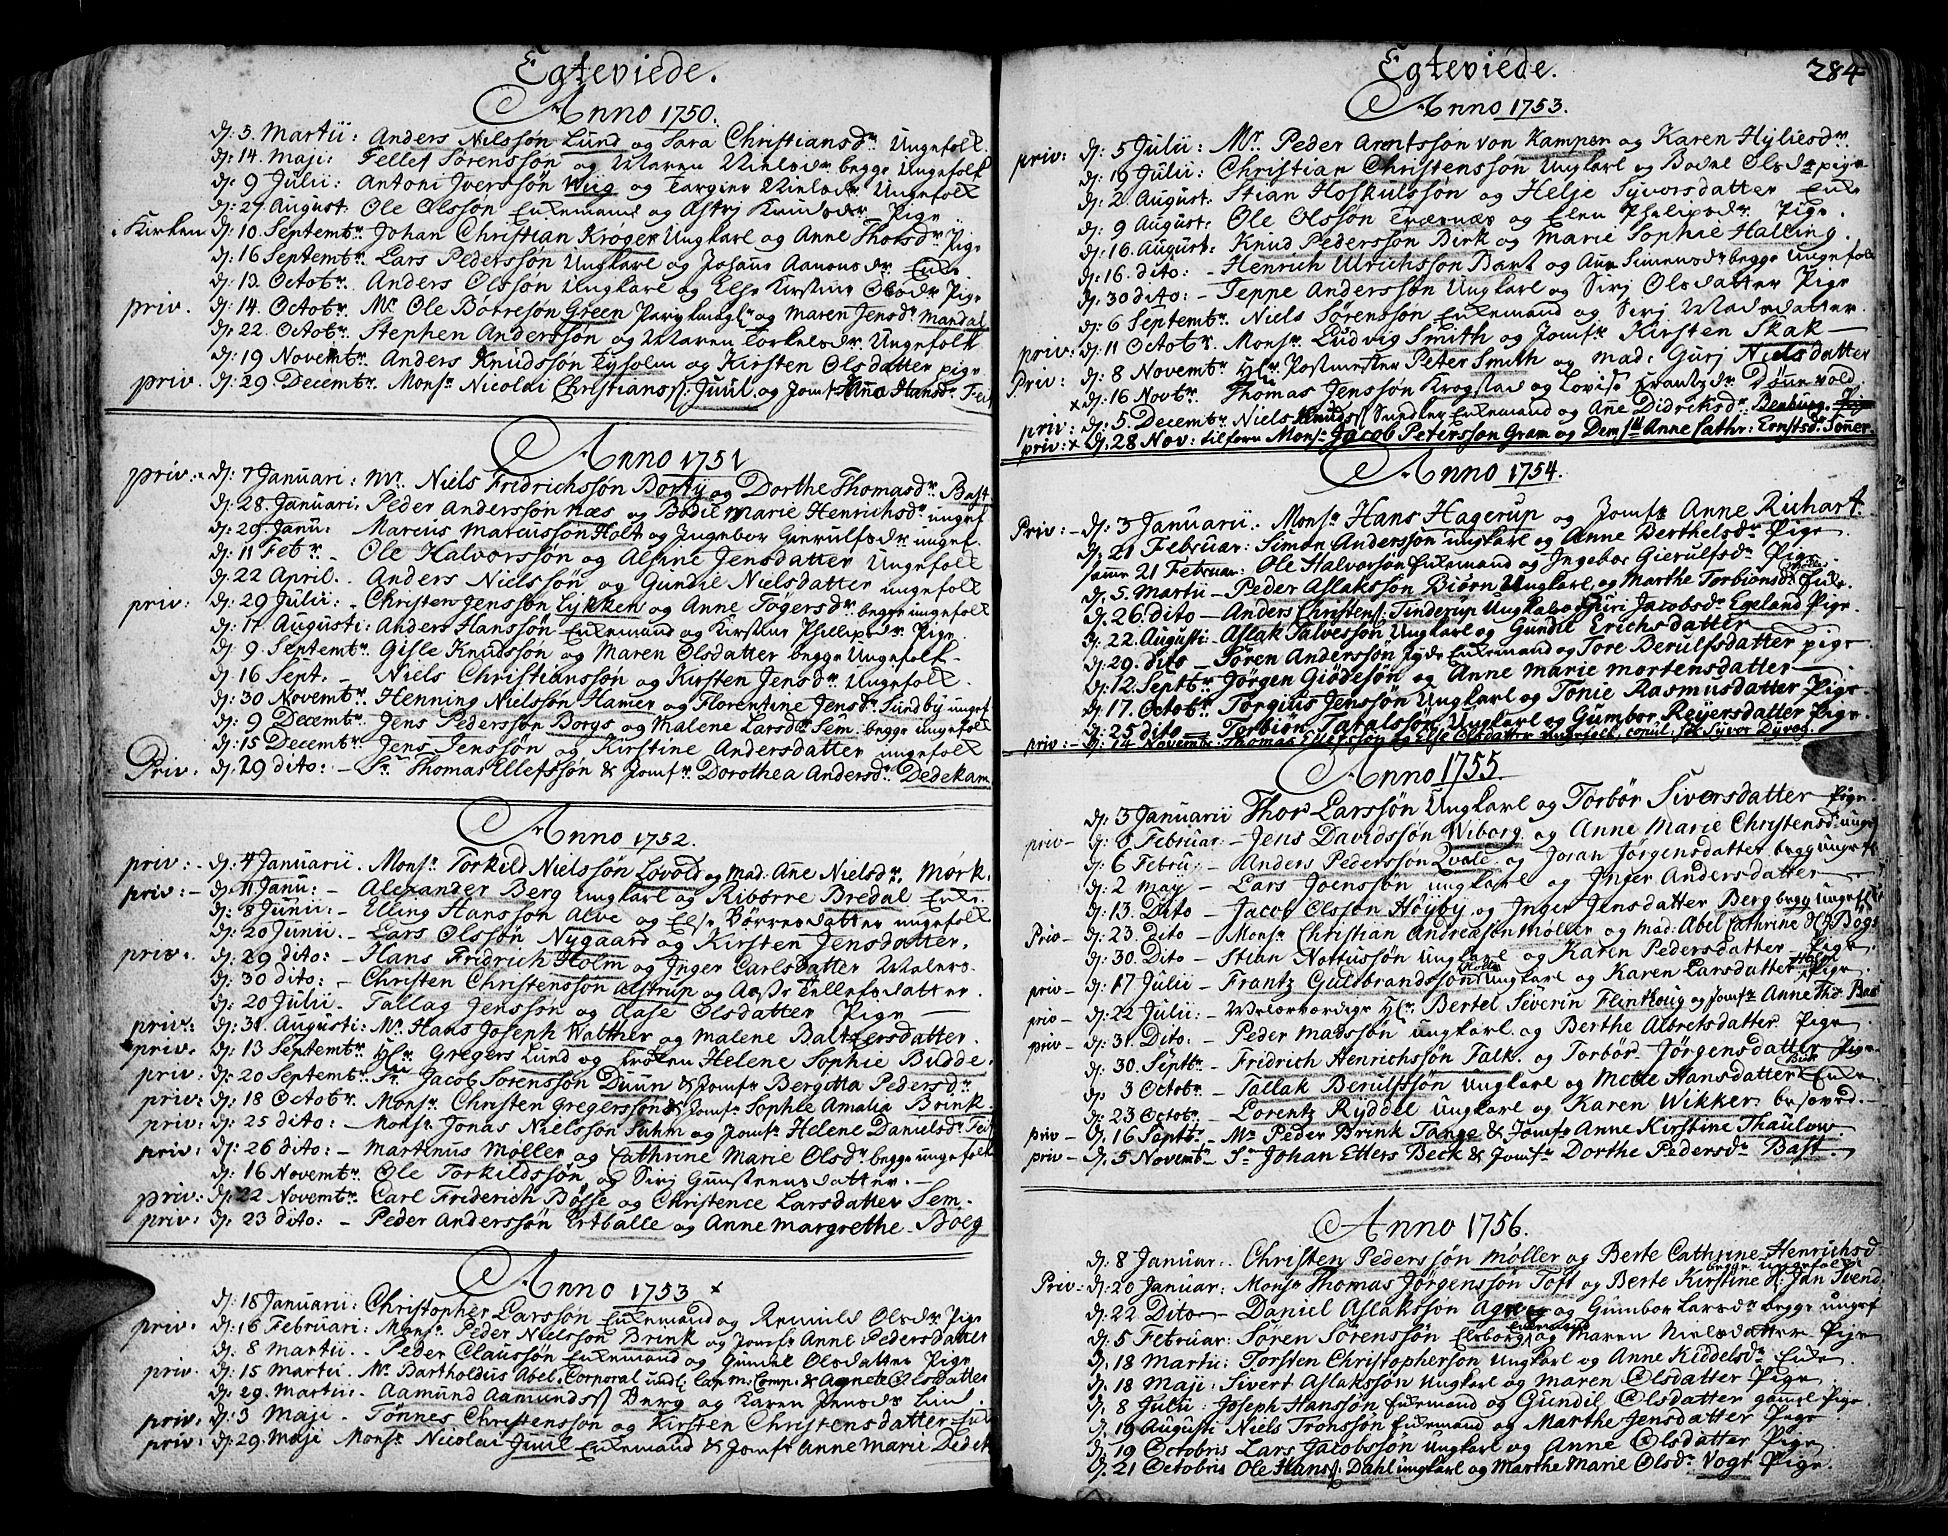 Egteviede.
Anno 1750.
d: 3. Martii: Anders Nilssøn Lund og Sara Christiansdr Ungefolk.
d: 14. Maji: Fellef Sørenssøn og Maren Nielsdr begge Ungefolk
d: 9 Julii: Antoni Iverssøn Wug og Targier Nielsdr Ungefolk
d: 27 August: Ole Olssøn Enkemand og Astrj Knudsdr Pige
Kirken d: 10 Septembr Johan Christian Krøger Ungkarl og Anne Thorsdr Pige
d: 16 Septembr Lars Pederssøn Ungkarl og Johane Aanonsdr Enke
d: 13 Octobr Anders Olssøn Ungkarl og Else Kirstine Olsdr Pige
priv. d: 14. Octobr Mr Ole Børresøn Green og Maren Jensdr Mandal
d: 22. Octobr Stephen Anderssøn og Maren Torkelsdr Ungefolk
d: 19 Novembr Anders Knudssøn Eyholm og Kirsten Olsdatter pige
priv. d: 29 Decembr. Monsr Nicolai Christianss: Juul og Jomfr Anna Hansdr
Anno 1751
priv: d: 7 Januari: Mr. Niels Fredrichssøn Borty og Dorthe Thomasdr Bast
d: 28. Januari: Peder Anderssøn Næs og Bodil Marie Henrichsdr ungef
d: 29. Janu: Marcus Marcussøn Holt og Ingebor Gierulfsdr ungef.
d: 11 Febr - Ole Halvorssøn og Alsine Jensdatter Ungefolk
d: 22 April. Anders Nielssøn og Gundil Nielsdatter ungefolk
priv: d: 29 Julii: - Christen Jenssøn Lykken og Anne Togersdr begge ungefolk
d: 17 Augusti: Anders Hanssøn Enkemand og Kirstine Phillipsdr Pige.
d: 9 Septembr Gisle Knudssøn og Maren Olsdatter begge Ungefolk
d: 16 Sept. - Niels Christianssøn og Kirsten Jensdr Ungefolk.
d: 30 Novembr Henning Nielssøn Hamer og Florentine Jensdr Sundby ungef
d: 9 Decembr Jens Pederssøn Borgs og Malene Larsdr Sem. begge ungefolk
d: 15 Decembr Jens Jenssøn og Kirstine Andersdatter ungefolk
Priv. d: 29 dito: - Sr Thomas Ellefssøn & Jomfr Dorothea Andersdr Dedekam
Anno 1752.
priv: - d: 4 Januarii. Monsr Torkild Nielssøn Lovold og Mad: Ane Nielsdr Mørk.
priv: - d: 11 Janu: - Alexander Berg Ungkarl og Ribørre Bredal Enke.
d: 8 Junii: - Elling Hanssøn Alve og Else Børresdatter ungefolk
d: 20 Junii. - Lars Olssøn Nygaard og Kirsten Jensdatter.
priv. d: 29 dito: - Hans Fridrich Holm og Inger Carlsdatter
d: 30 dito: - Christen Christenssøn Alstrup og Aase Tellefsdatter.
d: 20 Julii - Tallag Jenssøn og Aase Olsdatter Pige
priv: d: 31. Augusti: Mr. Hans Joseph Walther og Malene Baltzersdatter.
priv. d: 13 Septembr Hr Gregers Lund og Frøken Helene Sophie Bidde.
priv: d: 20 Septembr Sr Jacob Sørenssøn Dunn & Jomfr Bergitta Pedersdr
priv: d: 18 Octobr. Monsr Christen Gregerssøn & Jomfr Sophie Amalia Brink
priv: d: 25 dito: - Monsr Jonas Nielssøn Suhm og Jomfr Helene Danielsdr
priv: d: 26 dito: - Martinus Møller og Cathrine Marie Olsdr begge ungefolk
d: 16 Novembr Ole Torkildssøn og Sirj Gunstensdatter.
priv: d: 22 Novembr Carl Friderich Bøsse og Christence Larsdatter Sem.
priv: d: 23 dito: - Peder Anderssøn Ertballe og Anne Margrethe Boeg
Anno 1753
d: 18 Januarii: Christopher Larssøn Enkemand og Romild Olsdr Pige
priv. d: 16 Februari: Monsr Peder Nielssøn Brink og Jomfr Anne Pedersdatter
d: 8 Martii. - Peder Claussøn Enkemand og Gundel Olsdatter Pige
priv. d: 15 Martii Mr Bartholdus Abel, Corporal & Agnete Olsdatter
d: 29. Martii: Aamund Aamundss Berg og Karen Jensdr Lund.
priv: d: 3 Maji - Tønnes Christenssøn og Kirsten Christensdatter
priv: d: 29. Maji Monsr Nicolai Juul Enkemand & Jomfr Anne Marie
Egteviede.
284
Anno 1753.
priv: d: 5 Julii: Mr. Peder Arntssøn von Kampen og Karen Hyliesdr
d: 19 Julii: Christian Christenssøn Ungkarl og Bodel Olsdr pige
d: 2 August: Stian Hoskulssøn og Helje Syversdatter Enke
d: 9 August: Ole Olssøn Tværnæs og Elen Philipsdr Pige.
d: 16 August: Knud Pederssøn Birk og Marie Sophie Halling.
d: 16. dito: - Henrich Ulrichssøn Bart og Ane Simensdr begge ungefolk
d: 30 dito: - Jeppe Anderssøn Ungkarl og Sirj Olsdatter Pige
d: 6 Septembr. Niels Sørenssøn Enkemand og Sirj Madsdatter.
priv: d: 11 Octobr. Monsr Ludvig Smith og Jomfr Kirsten Skak
Priv: d: 8 Novembr Hr. Postmester Peter Smith og Mad: Gurj Nielsdatter
x d: 16 Novbr. Thomas Jenssøn Krogstad og Lovise Frantzdr Dønnevold
priv: d: 5. Decembr Niels Knudss Sundler Enkemand og Ane Didriksdr Benburg.
priv: x d: 28 Nov: tilforn Monsr Jacob Peterssøn Gram og Demsll Anne Cathr: Ernstsdr Toner.
Anno 1754.
Priv: - d: 3 Januarii. Monsr Hans Hagerup og Jomfr Anne Richart.
d: 21 Februar: Simon Anderssøn Ungkarl og Anne Berthelsdr Pige
samme 21 Februar: Ole Halvorssøn Enkemand og Ingebor Gierulfsdr Pige
d: 5. Martii - Peder Aslakssøn Biørn Ungkarl og Marthe Torbiønsdr Enke.
d: 26. dito - Anders Christenss: Tinderup Ungkarl og Guri Jacobsdr Egeland Pige.
d: 22. Augusti: Aslak Salvessøn Ungkarl og Gundil Erichsdatter
d: 29. dito - Søren Anderssøn Jyde Enkemand og Tore Berulfsdatter pige
d: 12. Septbr Jørgen Giødesøn og Anne Marie Mortensdatter
d: 17. Octobr Torgius Jenssøn Ungkarl og Tonie Rasmusdatter Pige.
d: 25 dito - Torbiøn Taralssøn Ungkarl og Gumbor Reyersdatter Pige.
priv: - d: 14 Novembr Thomas Ellefssøn og Else Olsdatter Ungefolk, copul: Syver Dyvog.
Anno 1755.
d: 3 Januarii Thor Larssøn Ungkarl og Torbør Siversdatter Pige.
priv - d: 6 Februar: - Jens Davidssøn Wiborg og Anne Marie Christensdr unge
d: 6 Febru: - Anders Pederssøn Qvale og Joran Jørgensdatter begge ungef
d: 2 May - Lars Joenssøn Ungkarl og Inger Andersdatter
d: 13. Dito - Jacob Olssøn Høyby og Inger Jensdatter Berg begge ungefolk
Priv - d: 23. Dito - Monsr Christian Andreasøn Møller og Mad: Abel Cathrine Bøgs
d: 30. Dito - Stian Nottussøn Ungkarl og Karen Pedersdatter Pige
priv - d: 17 Julii - Frantz Guldbrandssøn Holte Ungkarl og Karen Larsdatter Pige.
prio - d: 22 Julii: - Velærværdige Hr. Bertel Siverin Flintkoug og Jomfr Anne Tho. Bas
priv - d: 31. Dito: - Peder Madssøn Ungkarl og Berthe Albretsdatter Pige
d: 30. Septbr - Fridrich Henrichssøn Falk. og Torbør Jørgensdatter Pige.
d: 3 Octobr - Tallak Berulfssøn Ungkarl og Mette Hansdatter Enke
d: 23 Octobr - Lorentz Ryddel Ungkarl og Karen Wikker besoved.
priv - d: 16 Septbr - Mr Peder Brink Tange & Jomfr Anne Kirstine Thaulow
priv - d: 5 Novembr - Sr Johan Etlers Beck & Jomfr Dorthe Pedersdr Bast
Anno 1756.
d: 8 Januar: Christen Pederssøn Møller og Berte Cathrine Henrichsd
begge ungefolk
Priv. - d: 20 Januar: Monsr Thomas Jørgenssøn Toft og Berte Kirstine Jan Svend
d: 22 Dito - Daniel Aslakssøn og Gumbor Larsdr begge ungef
d: 5 Februar: Søren Sørenssøn Elsborg Enkemand og Maren Nielsdatter Pige
d: 18 Martii: Torsten Christophersøn Ungkarl og Anne Kiddelsdr Enke.
d: 18 Maji: Sivert Aslakssøn Ungkarl og Maren Olsdatter Pige
d: 8 Julii: Joseph Hanssøn Enkemand og Gundil Olsdatter gamel Pige.
d: 19 Augusti Niels Tronssøn Enkemand og Marthe Jensdatter Pige
d: 19 Octobris Lars Jacobssøn Ungkarl og Anne Olsdatter Pige
d: 21 Octobris Ole Hanss: Dahl ungkarl og Marthe Marie Olsdr Vogt Pige.